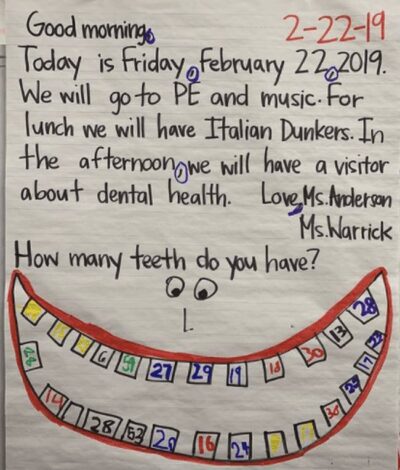 Good morning, 2-22-19
Today is Friday, February 22, 2019.
We will go to PE and music. For
lunch we will have Italian Dunkers. In
the afternoon, we will have a visitor
about dental health. Love, Ms. Anderson
Ms. Warrick
How many teeth do you have?
6 27 29 19 18 30 13 28
14 28 53 20 16 24 30 25 17 23